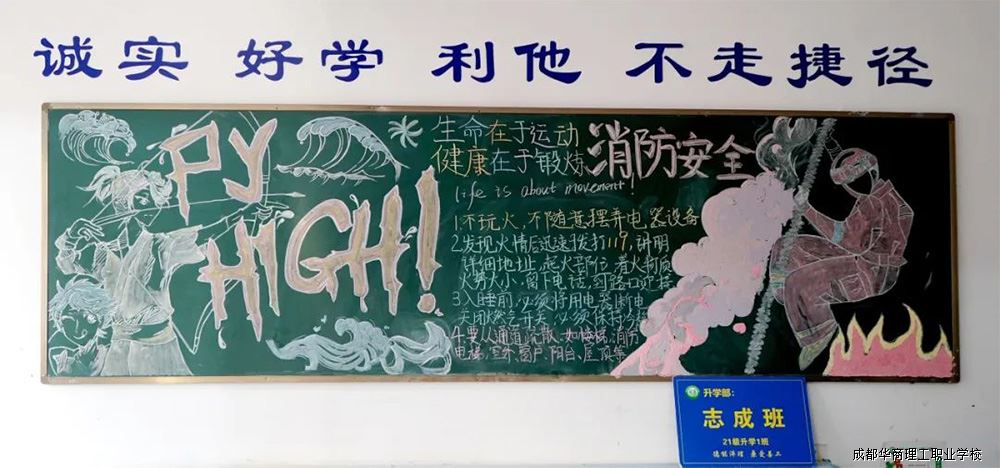 诚实 好学 利他 不走捷径
PY
HIGH!
生命在于运动
健康在于锻炼
life is about movement!
消防安全
1.不玩火,不随意摆弄电器设备
2.发现火情后迅速拨打119,讲明
详细地址,起火部位,着火物质
火势大小,留下电话,到路口迎接
3.入睡前,必须将用电器断电
关闭燃气开关,必须保持
4.要从通道疏散,如楼梯,消防
电梯,室外,窗户,阳台,屋顶等
升学部:
志成班
21级升学1班
德能泽瑶 兼爱善工
成都华商理工职业学校